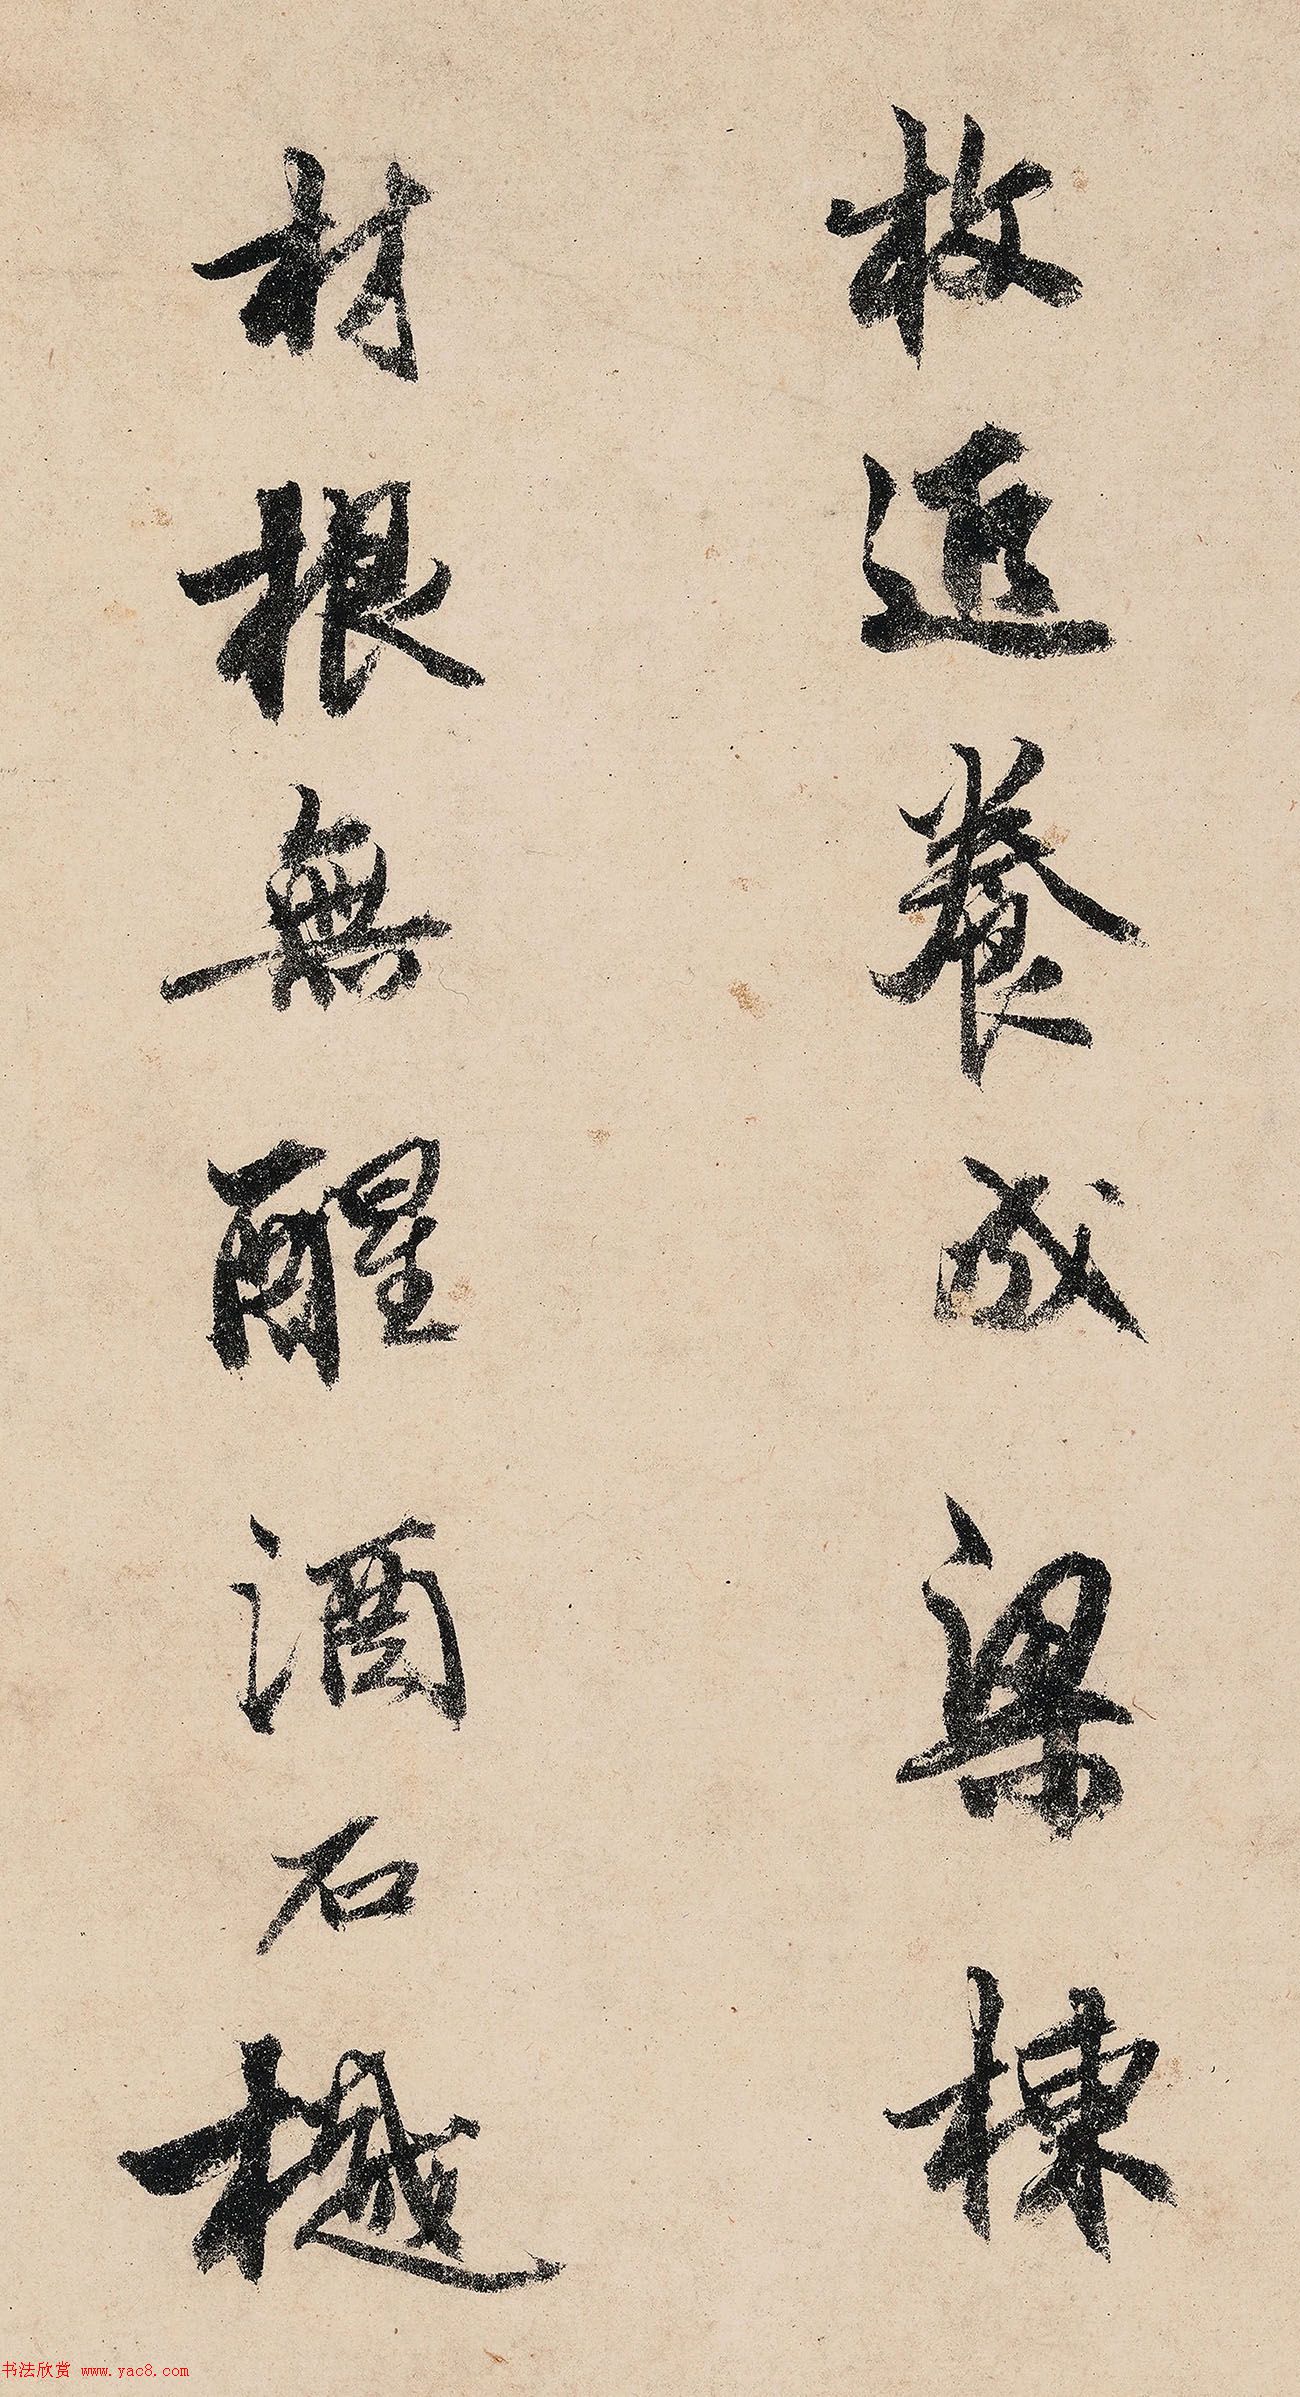 枚近養成梁棟
材根無醒酒石樾
书法欣赏 www.yac8.com